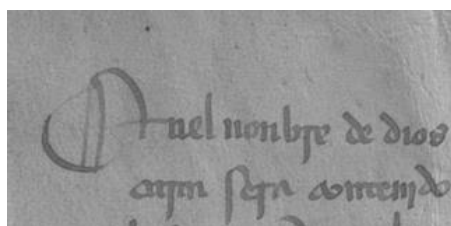 Enel nonbre de dios
aqui sera contenido